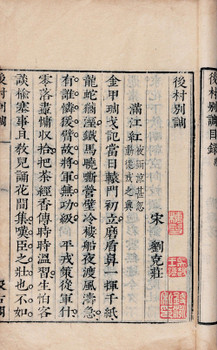 後村別調目錄
後村別調
宋 劉克莊
滿江紅 夜雨涼甚忽動從戎之興
金甲琱戈記當日轅門初立磨盾鼻一揮千紙
龍蛇猶溼鐵馬曉嘶營壁冷樓船夜渡風濤急
有誰憐猨臂故將軍無功級 平戎策從軍什
零落盡慵收拾把茶經香傳時時溫習生怕客
談榆塞事且敎兒誦花間集嘆臣之壯也不如
後村別調